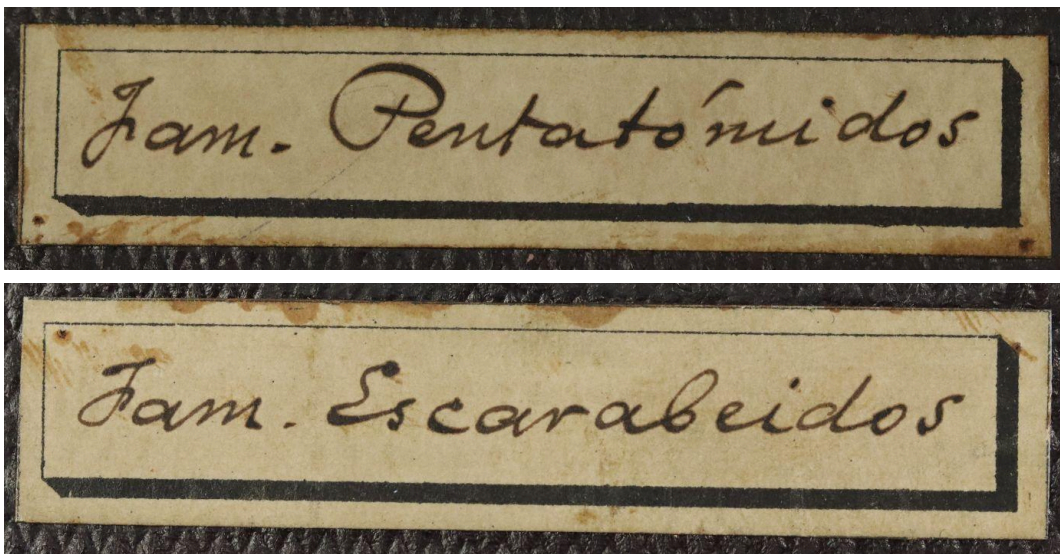 Fam. Pentatómidos
Fam. Escarabeidos